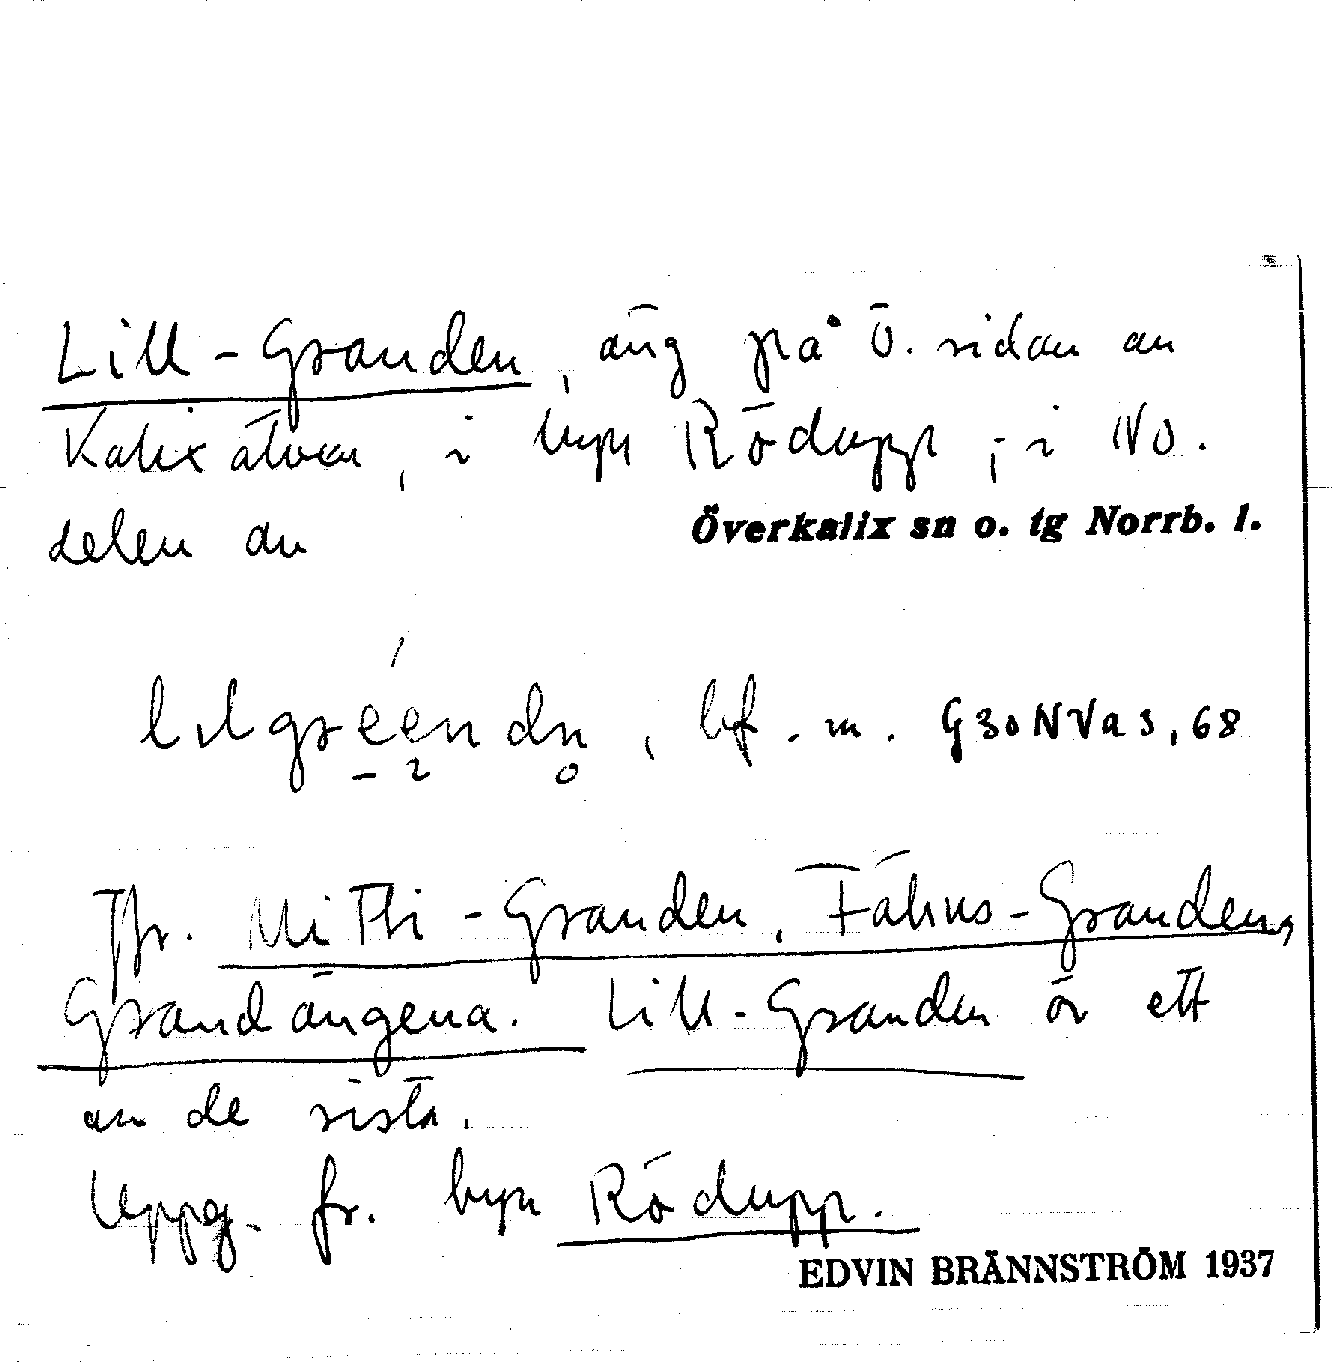 Lill-Granden, äng på ö. sidan av
Kalixälven, i byn Rödupp, i NO.
delen av
Överkalix sn o. tg Norrb. l.
bf. m. G30NVa3,68
Jfr. Mitti-Granden, Fähus-Granden,
Grandängena. Lill-Granden är ett
av de sista.
Uppg. fr. byn Rödupp.
EDVIN BRÄNNSTRÖM 1937